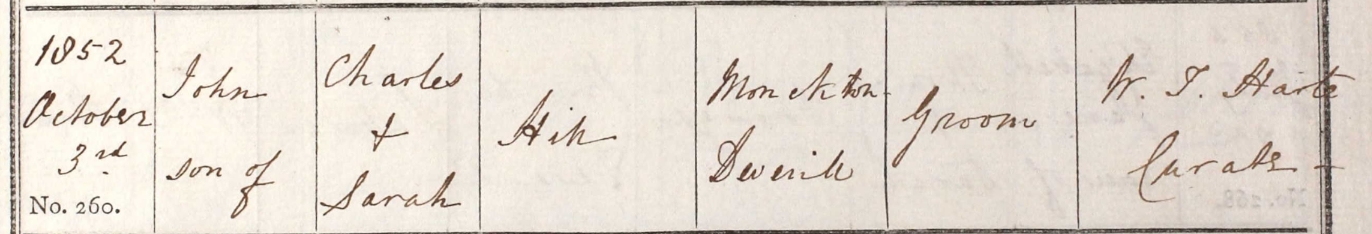 1852
October
3rd
No. 260.
John
son of
Charles
&
Sarah
Monckton
Deverill
Groom
W. T. Harte
Curate